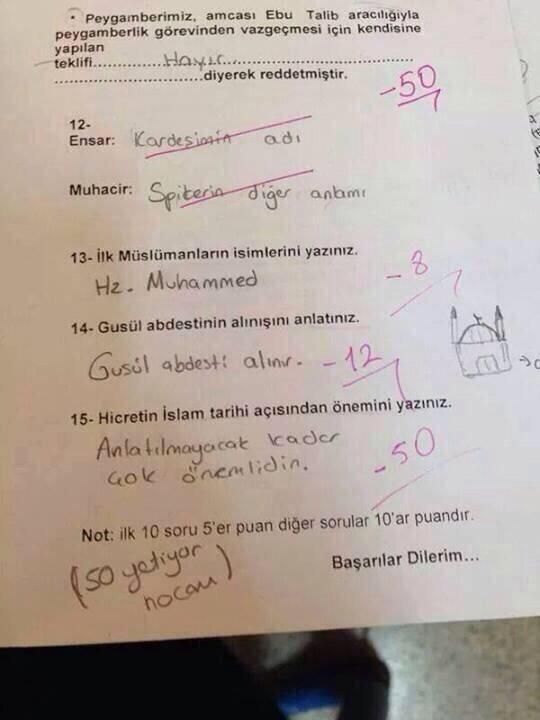 • Peygamberimiz, amcası Ebu Talib aracılığıyla
peygamberlik görevinden vazgeçmesi için kendisine
yapılan
teklifi..............Hayır..............
..............diyerek reddetmiştir.
-50
12-
Ensar: Kardeşimin adı
Muhacir: Spikerin diğer anlamı
13- İlk Müslümanların isimlerini yazınız.
Hz. Muhammed
-8
14- Gusül abdestinin alınışını anlatınız.
Gusül abdesti alınır. -12
15- Hicretin İslam tarihi açısından önemini yazınız.
Anlatılmayacak kadar
çok önemlidin.
-50
Not: ilk 10 soru 5'er puan diğer sorular 10'ar puandır.
(50 yetiyor
hocam)
Başarılar Dilerim...